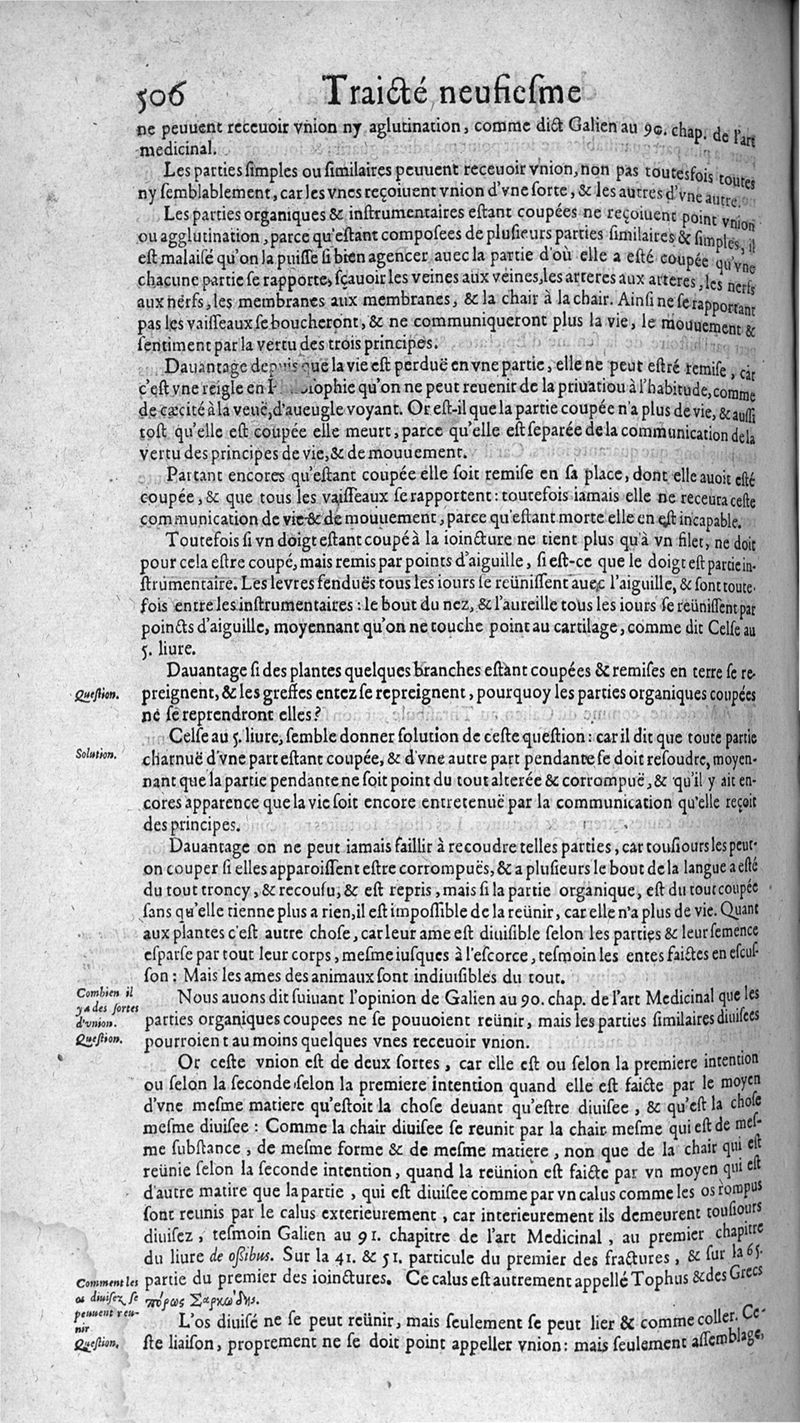 506 Traicté neufiesme
ne peuuent receuoir vnion ny aglutination, comme dict Galien au 90. chap. de l'art
medicinal.
Les parties simples ou similaires peuuent receuoir vnion, non pas toutesfois toutes
ny semblablement, car les vnes reçoiuent vnion d'vne sorte, & les autres d'vne autre.
Les parties organiques & instrumentaires estant coupées ne reçoiuent point vnion
ou agglutination, parce qu'estant composees de plusieurs parties similaires & simples, il
est malaisé qu'on la puisse si bien agencer auec la partie d'où elle a esté coupée qu'vne
chacune partie se rapporte, sçauoir les veines aux veines, les arteres aux arteres, les nerfs
aux nerfs, les membranes aux membranes, & la chair à la chair. Ainsi ne se rapportant
pas les vaisseaux se boucheront, & ne communiqueront plus la vie, le mouuement &
sentiment par la vertu des trois principes.
Dauantage depuis que la vie est perduë en vne partie, elle ne peut estré remise, car
c'est vne reigle en qu'on ne peut reuenir de la priuatiou à l'habitude, comme
de cæcité à la veuë, d'aueugle voyant. Or est-il que la partie coupée n'a plus de vie, & aussi
tost qu'elle est coupée elle meurt, parce qu'elle est separée de la communication de la
vertu des principes de vie, & de mouuement.
Partant encores qu'estant coupée elle soit remise en sa place, dont elle auoit esté
coupée, & que tous les vaisseaux se rapportent: toutefois iamais elle ne receura ceste
communication de vie & de mouuement, parce qu'estant morte elle en est incapable.
Toutefois si vn doigt estant coupé à la ioincture ne tient plus qu'à vn filet, ne doit
pour cela estre coupé, mais remis par points d'aiguille, si est-ce que le doigt est partie in-
strumentaire. Les levres fenduës tous les iours se reünissent auec l'aiguille, & sont toute-
fois entre les instrumentaires: le bout du nez, & l'aureille tous les iours se reünissent par
poincts d'aiguille, moyennant qu'on ne touche point au cartilage, comme dit Celse au
5. liure.
Dauantage si des plantes quelques branches estant coupées & remises en terre se re-
Question. preignent, & les greffes entez se repreignent, pourquoy les parties organiques coupées
ne se reprendront elles?
Celse au 5. liure, semble donner solution de ceste question: car il dit que toute partie
Solution. charnuë d'vne part estant coupée, & d'vne autre part pendante se doit resoudre, moyen-
nant que la partie pendante ne soit point du tout alterée & corrompuë, & qu'il y ait en-
cores apparence que la vie soit encore entretenuë par la communication qu'elle reçoit
des principes.
Dauantage on ne peut iamais faillir à recoudre telles parties, car tousiours les peut-
on couper si elles apparoissent estre corrompuës, & a plusieurs le bout de la langue a esté
du tout troncy, & recousu, & est repris, mais si la partie organique, est du tout coupée
sans qu'elle tienne plus a rien, il est impossible de la reünir, car elle n'a plus de vie. Quant
aux plantes c'est autre chose, car leur ame est diuisible selon les parties & leur semence
esparse par tout leur corps, mesme iusques à l'escorce, tesmoin les entes faictes en escus-
son: Mais les ames des animaux sont indiuisibles du tout.
Combien il
y a des sortes
d'vnion.
Question.
Nous auons dit suiuant l'opinion de Galien au 90. chap. de l'art Medicinal que les
parties organiques coupees ne se pouuoient reünir, mais les parties similaires diuisees
pourroient au moins quelques vnes receuoir vnion.
Or ceste vnion est de deux sortes, car elle est ou selon la premiere intention
ou selon la seconde selon la premiere intention quand elle est faicte par le moyen
d'vne mesme matiere qu'estoit la chose deuant qu'estre diuisee, & qu'est la chose
mesme diuisee: Comme la chair diuisee se reunit par la chair mesme qui est de mes-
me substance, de mesme forme & de mesme matiere, non que de la chair qui est
reünie selon la seconde intention, quand la reünion est faicte par vn moyen qui est
d'autre matire que la partie, qui est diuisee comme par vn calus comme les os rompus
sont reunis par le calus exterieurement, car interieurement ils demeurent tousiours
diuisez, tesmoin Galien au 91. chapitre de l'art Medicinal, au premier chapitre
du liure de oßibus. Sur la 41. & 51. particule du premier des fractures, & sur la 65.
partie du premier des ioinctures. Ce calus est autrement appellé Tophus & des Grecs
πόρος Σαρκώδης.
Comment les
os diuisez se
peuuent reu-
nir
Question.
L'os diuisé ne se peut reünir, mais seulement se peut lier & comme coller. Ce-
ste liaison, proprement ne se doit point appeller vnion: mais seulement assemblage,